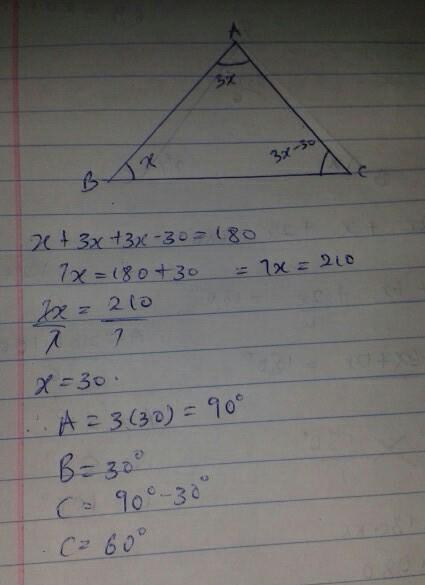 A
3x
x
3x-30
B
C
x + 3x + 3x - 30 = 180
7x = 180 + 30 = 7x = 210
7x = 210
7 7
x = 30.
∴ A = 3(30) = 90°
B = 30°
C = 90° - 30°
C = 60°